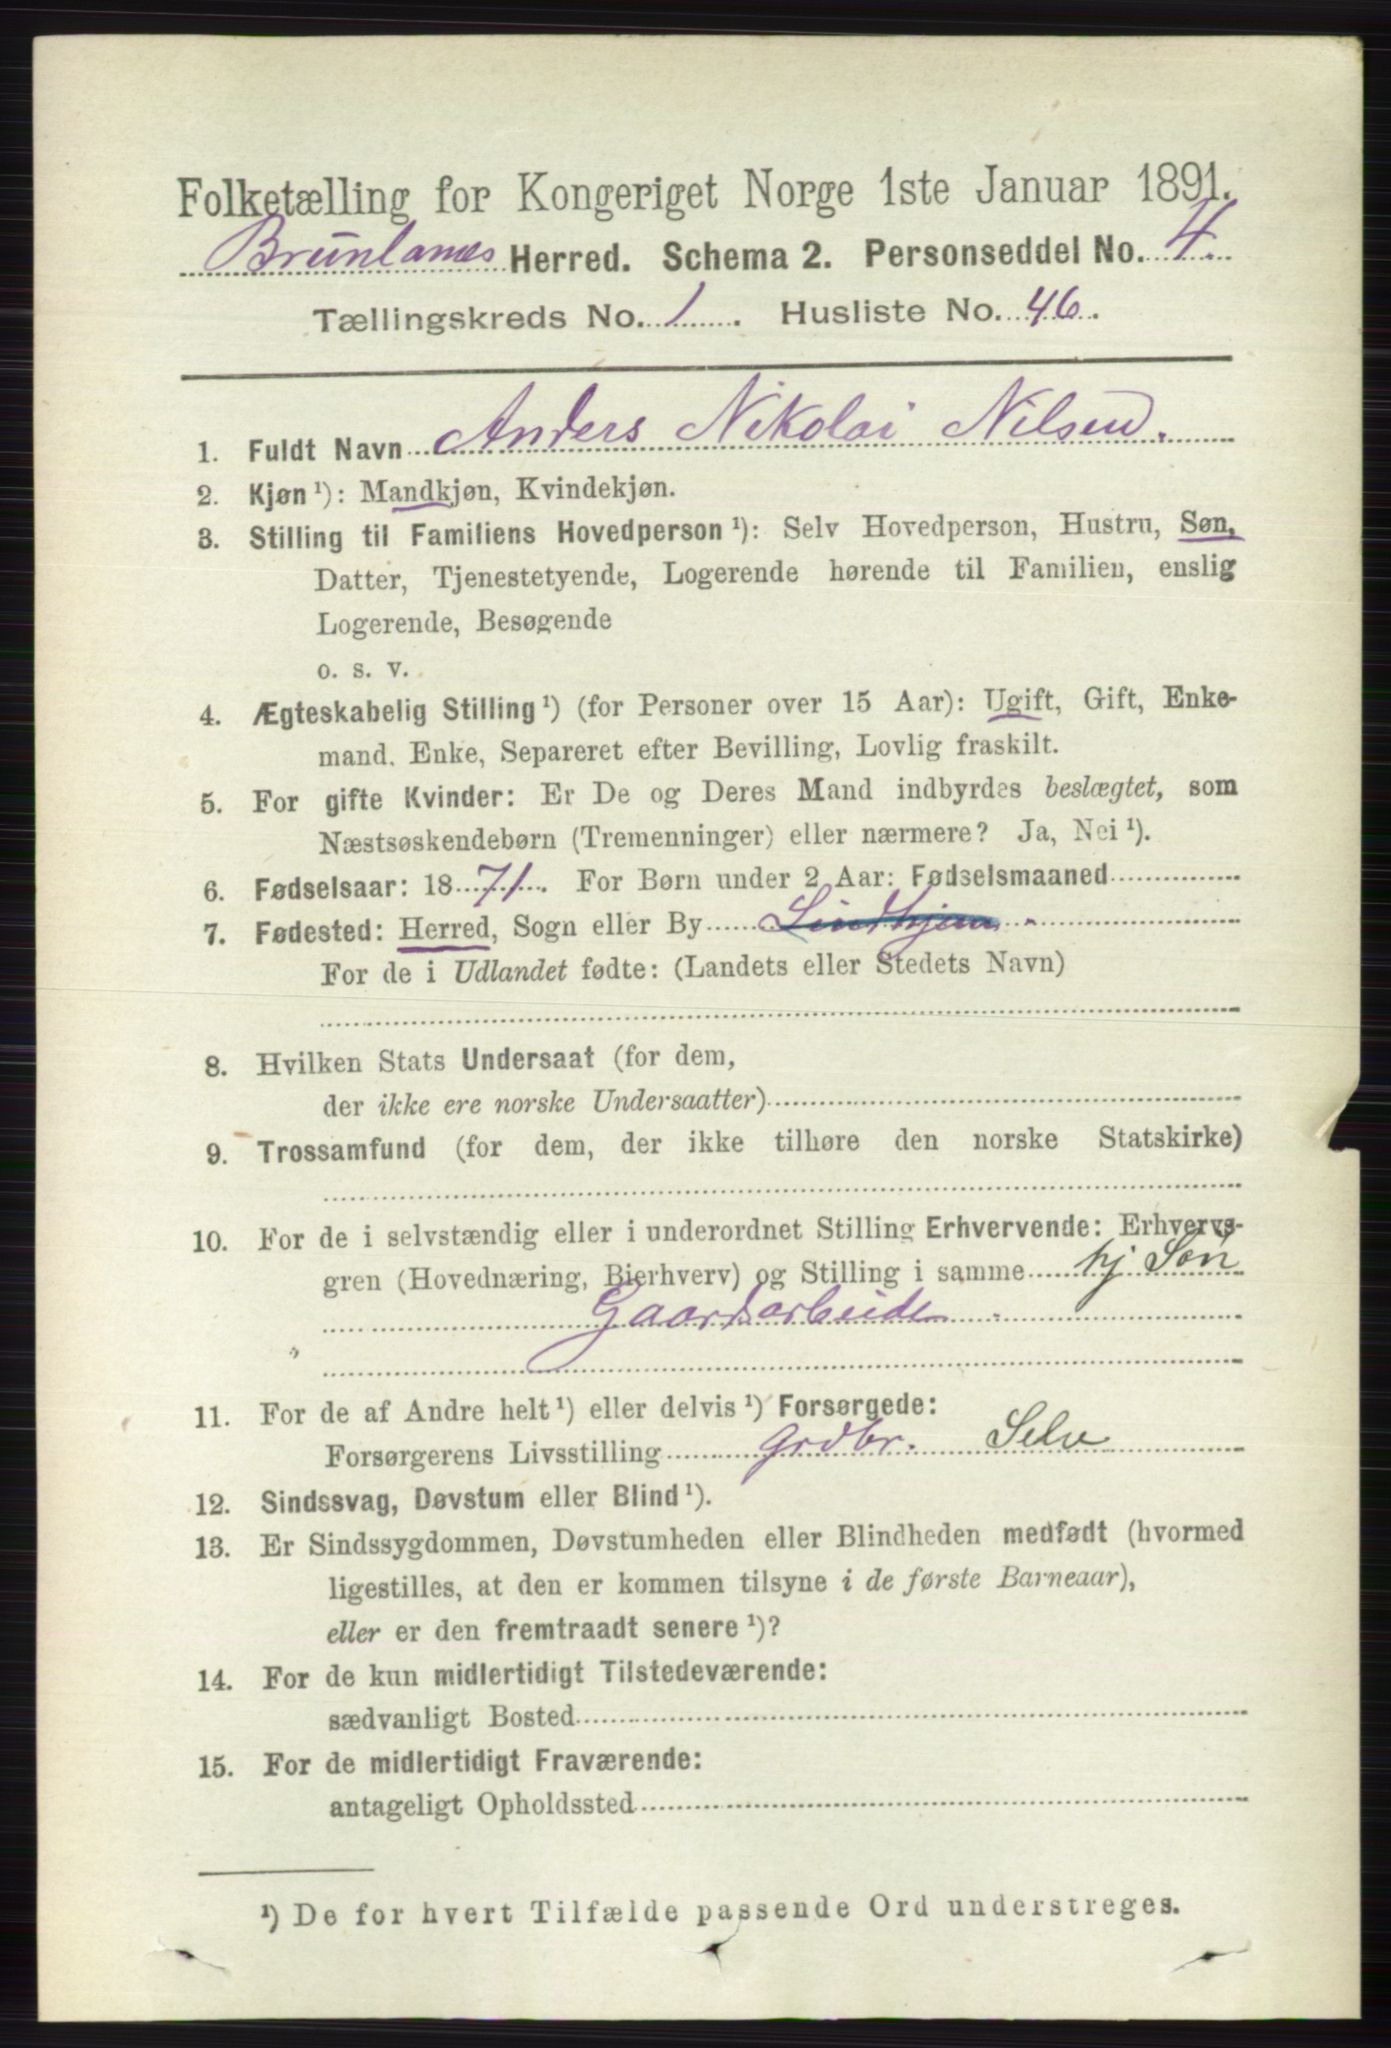 Folketælling for Kongeriget Norge 1ste Januar 1891.
Brunlanes Herred. Schema 2. Personseddel No. 4.
Tællingskreds No. 1. Husliste No. 46.
1. Fuldt Navn Anders Nikolai Nilsen.
2. Kjøn ¹): Mandkjøn, Kvindekjøn.
3. Stilling til Familiens Hovedperson ¹): Selv Hovedperson, Hustru, Søn,
Datter, Tjenestetyende, Logerende hørende til Familien, enslig
Logerende, Besøgende
o. s. v.
4. Ægteskabelig Stilling ¹) (for Personer over 15 Aar): Ugift, Gift, Enke-
mand. Enke, Separeret efter Bevilling, Lovlig fraskilt.
5. For gifte Kvinder: Er De og Deres Mand indbyrdes beslægtet, som
Næstsøskendebørn (Tremenninger) eller nærmere? Ja, Nei ¹).
6. Fødselsaar: 1871. For Børn under 2 Aar: Fødselsmaaned
7. Fødested: Herred, Sogn eller By
For de i Udlandet fødte: (Landets eller Stedets Navn)
8. Hvilken Stats Undersaat (for dem,
der ikke ere norske Undersaatter)
9. Trossamfund (for dem, der ikke tilhøre den norske Statskirke)
10. For de i selvstændig eller i underordnet Stilling Erhvervende: Erhvervs-
gren (Hovednæring, Bierhverv) og Stilling i samme hj Søn
Gaardsarbeide
11. For de af Andre helt ¹) eller delvis ¹) Forsørgede:
Forsørgerens Livsstilling Grdbr. Selv
12. Sindssvag, Døvstum eller Blind ¹).
13. Er Sindssygdommen, Døvstumheden eller Blindheden medfødt (hvormed
ligestilles, at den er kommen tilsyne i de første Barneaar),
eller er den fremtraadt senere ¹)?
14. For de kun midlertidigt Tilstedeværende:
sædvanligt Bosted
15. For de midlertidigt Fraværende:
antageligt Opholdssted
¹) De for hvert Tilfælde passende Ord understreges.